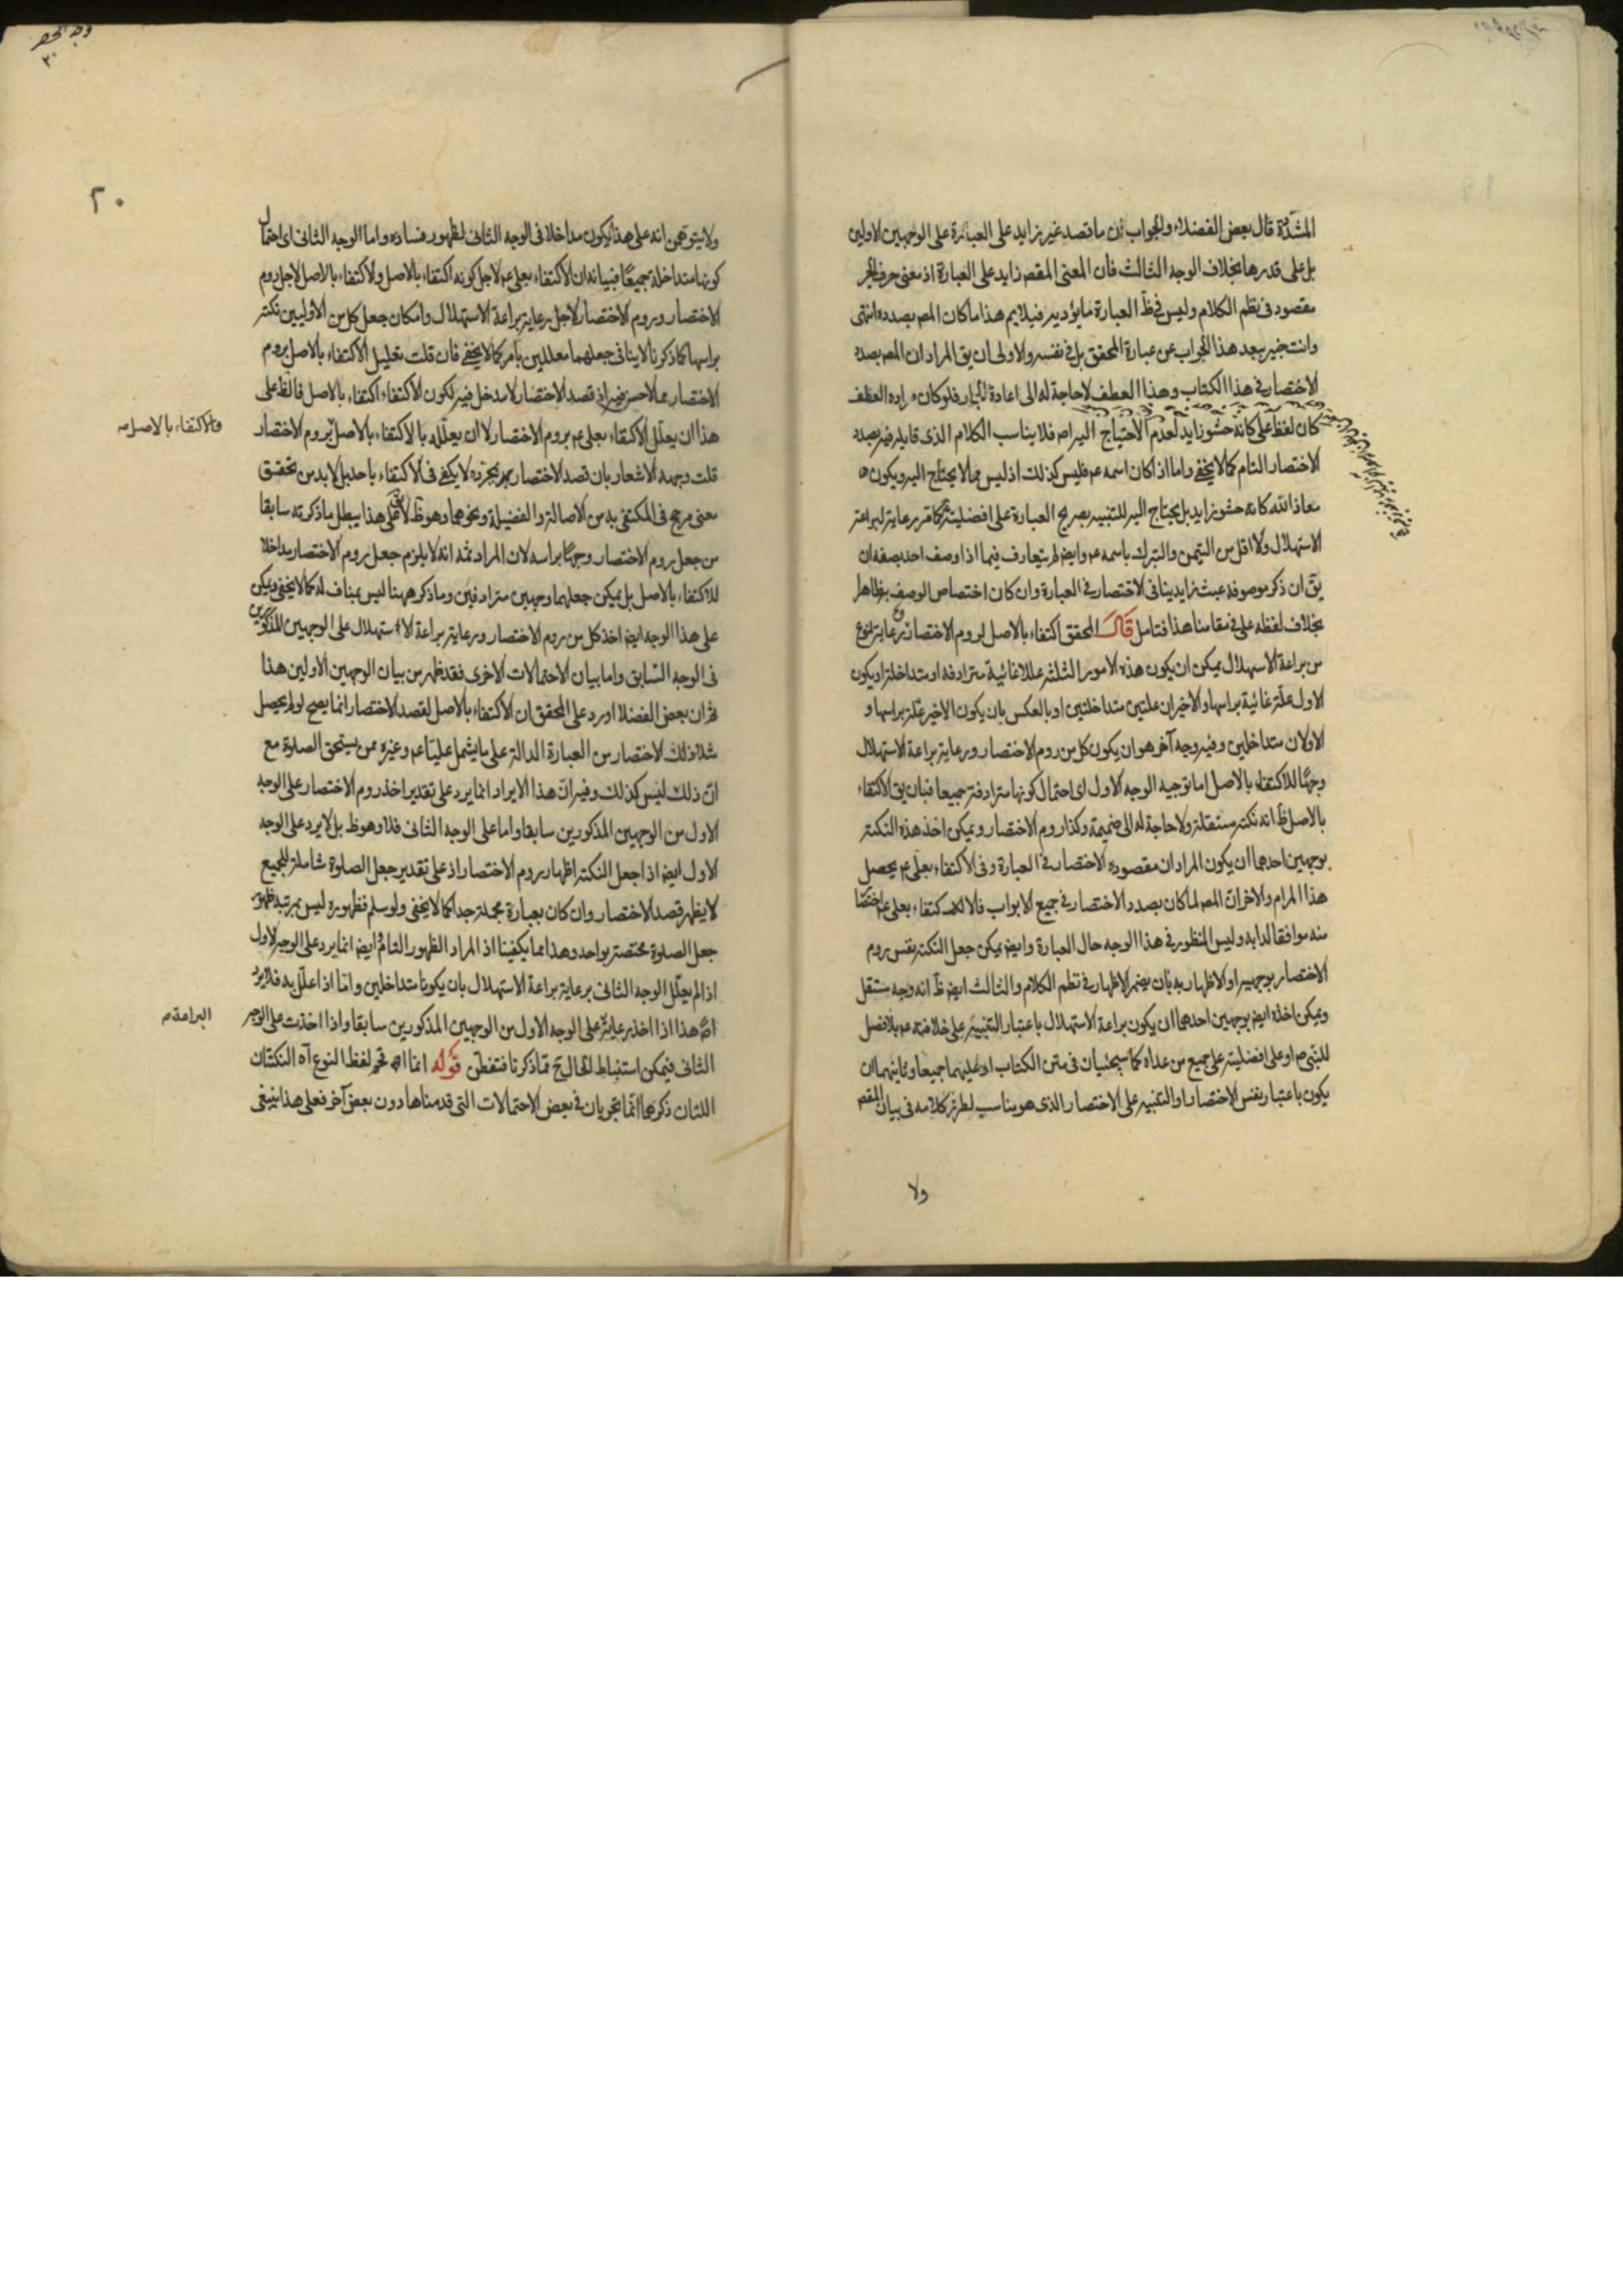 المشدّدة قال بعض الفضلاء والجواب أن ما قصد غير زايد على العبارة على الوجهين الاولين
بل على قدرها بخلاف الوجه الثالث فان المعنى المقصـ زايد على العبارة اذ معنى حرف الجر
مقصود فى نظم الكلام وليس فى ظ العبارة ما يؤديه فيلايم هذا ما كان المصـ بصدده انتهى
وانت خبير ببعد هذا الجواب عن عبارة المحقق بل فى نفسه والاولى ان يق المراد ان المصـ بصدد
الاختصار فى هذا الكتاب وهذا العطف لا حاجة له الى اعادة الجار فلو كان مراده العطف
كان لفظ على كانه حشو زايد لعدم الاحتياج اليه اصـ فلا يناسب الكلام الذى قايله فيه بصدد
الاختصار التام كما لا يخفى واما اذا كان اسمه عم فليس كذلك اذ ليس مما لا يحتاج اليه ويكون
معاذ الله كانه حشو زايد بل يحتاج اليه للتنبيه بصريح العبارة على افضليته كما مر رعاية لبراعة
الاستهلال ولا اقل من التيمن والتبرك باسمه عم وايضـ لم يتعارف فيما اذا وصف احد بصفة ان
يق ان ذكر موصوفه عبث زايد ينافى الاختصار فى العبارة وان كان اختصاص الوصف به ظاهرا
بخلاف لفظه على فى مقامنا هذا فتامل قال المحقق اكتفاء بالاصل لروم الاختصار ورعاية لنوع
من براعة الاستهلال يمكن ان يكون هذه الامور الثلثة عللا غائية مترادفة او متداخلة او يكون
الاول علة غائية براسها والاخيران علتين متداخلتين او بالعكس بان يكون الاخير علة براسها و
الاولان متداخلين وفيه وجه آخر هو ان يكون كل من روم الاختصار ورعاية براعة الاستهلال
وجها للاكتفاء بالاصل اما توجيه الوجه الاول اى احتمال كونها مترادفة جميعا فبان يق الاكتفاء
بالاصل ظ انه نكتة مستقلة ولا حاجة له الى ضميمة وكذا روم الاختصار ويمكن اخذ هذه النكتة
بوجهين احدهما ان يكون المراد ان مقصوده الاختصار فى العبارة وفى الاكتفاء بعلى عم يحصل
هذا المرام والاخر ان المصـ لما كان بصدد الاختصار فى جميع الابواب فالاكتفاء بعلى عم اختصار
منه موافقا لدابه وليس المنظور فى هذا الوجه حال العبارة وايضـ يمكن جعل النكتة نفس روم
الاختصار بوجهيه او الاظهار به بان يضمر الاظهار فى نظم الكلام والثالث ايضـ ظ انه وجه مستقل
ويمكن اخذه ايضـ بوجهين احدهما ان يكون براعة الاستهلال باعتبار التنبيه على خلافته عم بلا فصل
للنبى ص او على افضليته على جميع من عداه كما سيجيئان فى متن الكتاب او عليهما جميعا وثانيهما ان
يكون باعتبار نفس الاختصار او التنبيه على الاختصار الذى هو مناسب لطرز كلامه فى بيان المقصـ
ولا
٢٠
ولا يتوهمن انه على هذا يكون مداخلا فى الوجه الثانى لظهور فساده واما الوجه الثانى اى احتمال
كونها متداخلة جميعا فبيانه ان الاكتفاء بعلى عم لاجل كونه اكتفاء بالاصل والاكتفاء بالاصل لاجل روم
الاختصار وروم الاختصار لاجل رعاية براعة الاستهلال وامكان جعل كل من الاوليين نكتة
براسها كما ذكرنا لا ينافى جعلهما معللين بامر كما لا يخفى فان قلت تعليل الاكتفاء بالاصل بروم
الاختصار مما لا حسن فيه اذ قصد الاختصار لا مدخل فيه لكون الاكتفاء اكتفاء بالاصل فالظ على
هذا ان يعلل الاكتفاء بعلى عم بروم الاختصار لا ان يعلله بالاكتفاء بالاصل بروم الاختصار
والاكتفاء بالاصل
قلت وجهه الاشعار بان قصد الاختصار بمجرده لا يكفى فى الاكتفاء باحد بل لا بد من تحقق
معنى مرجح فى المكتفى به من الاصالة والفضيلة ونحوهما وهو ظ لا يق فعلى هذا يبطل ما ذكرته سابقا
من جعل روم الاختصار وجها براسه لان المراد ثمه انه لا يلزم جعل روم الاختصار مداخلا
للاكتفاء بالاصل بل يمكن جعلهما وجهين مترادفين وما ذكر ههنا ليس بمناف له كما لا يخفى ويمكن
على هذا الوجه ايضـ اخذ كل من روم الاختصار ورعاية براعة الاستهلال على الوجهين المذكورين
فى الوجه السابق واما بيان الاحتمالات الاخرى فقد ظهر من بيان الوجهين الاولين هذا
ثم ان بعض الفضلا اورد على المحقق ان الاكتفاء بالاصل لقصد الاختصار انما يصح لو لم يحصل
مثل ذلك الاختصار من العبارة الدالة على ما يشمل عليا عم وغيره ممن يستحق الصلوة مع
ان ذلك ليس كذلك وفيه ان هذا الايراد انما يرد على تقدير اخذ روم الاختصار على الوجه
الاول من الوجهين المذكورين سابقا واما على الوجه الثانى فلا وهو ظ بل لا يرد على الوجه
الاول ايضـ اذا جعل النكتة اظهار روم الاختصار اذ على تقدير جعل الصلوة شاملة للجميع
لا يظهر قصد الاختصار وان كان بعبارة مجملة جدا كما لا يخفى ولو سلم فظهوره ليس بمرتبة ظهور
جعل الصلوة مختصة بواحد وهذا مما يكفينا اذ المراد الظهور التام وايضـ انما يرد على الوجه الاول
اذا لم يعلل الوجه الثانى برعاية براعة الاستهلال بان يكونا متداخلين واما اذا علل به فلا يرد
اصـ هذا اذا اخذ رعاية على الوجه الاول من الوجهين المذكورين سابقا واذا اخذت على الوجه
البراعة
الثانى فيمكن استنباط الحال ح مما ذكرنا فتفطن قوله انما اقحم لفظ النوع آه النكتتان
اللتان ذكرهما انما تجريان فى بعض الاحتمالات التى قدمناها دون بعض آخر فعلى هذا ينبغى